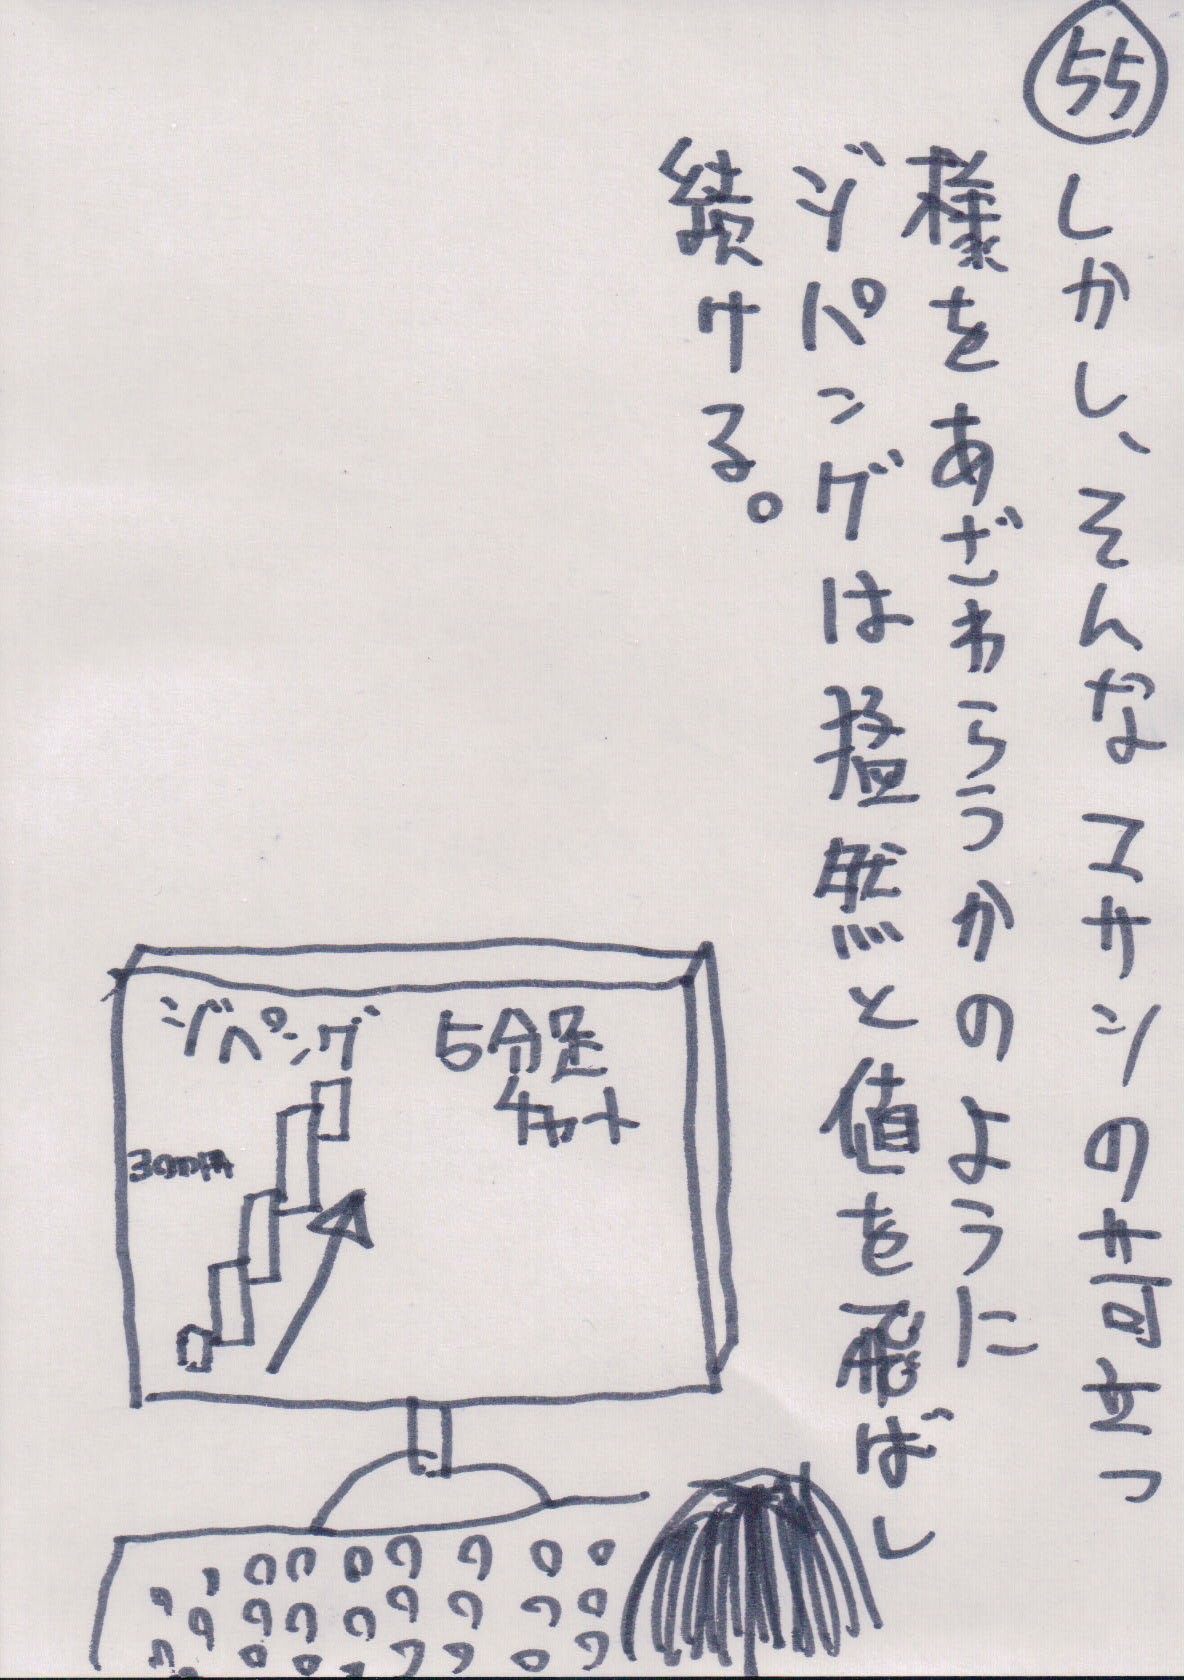 55
しかし、そんなユサンの苛立つ
様をあざわらうかのように
ジパングは猛然と値を飛ばし
続ける。
ジパング
5分足
チャート
3000円